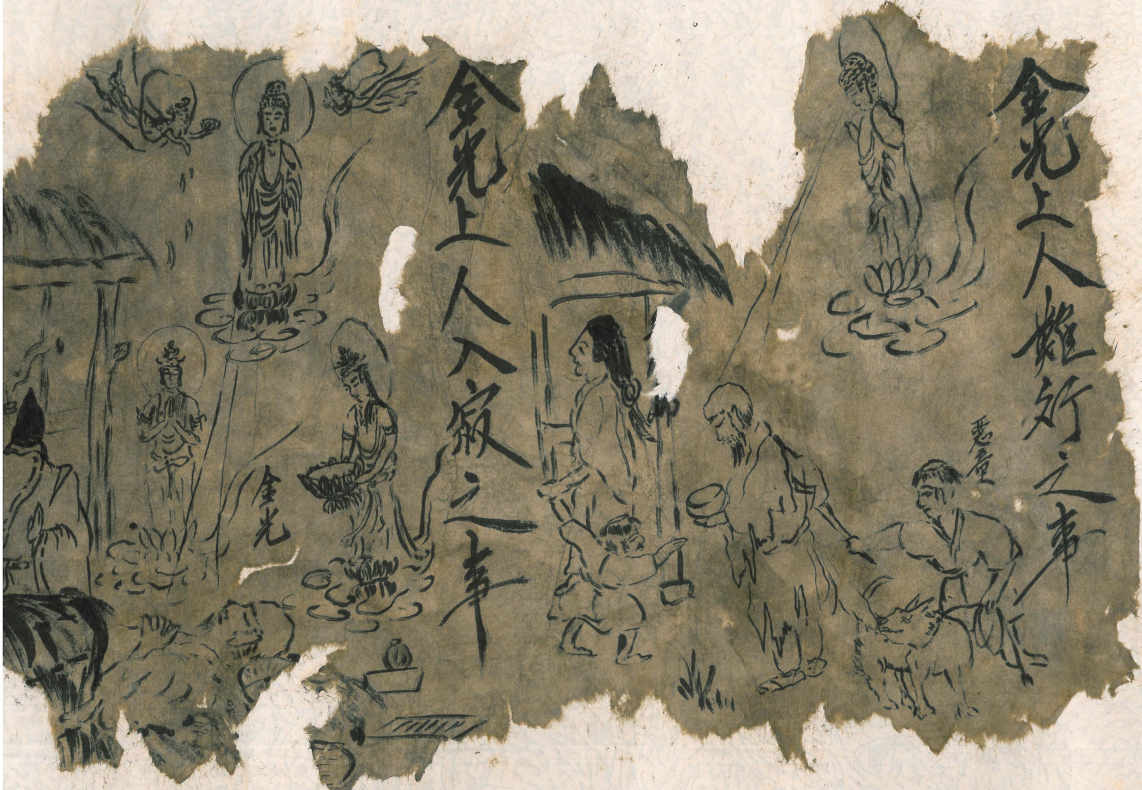 金光上人難行之事
悪童
金光上人入寂之事
金光